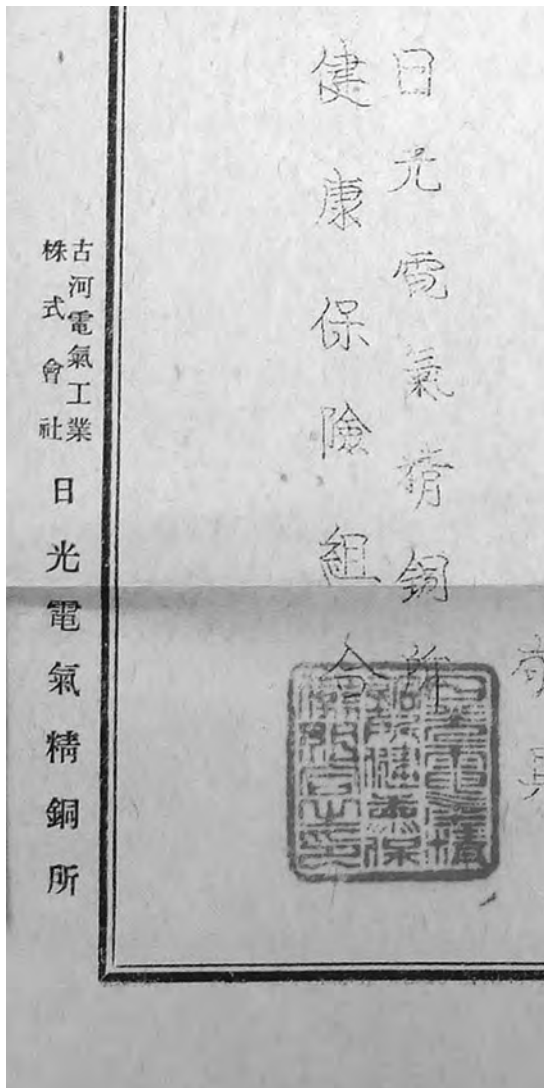 敬具
日光電氣精銅所
健康保險組合
古河電氣工業
株式會社
日光電氣精銅所